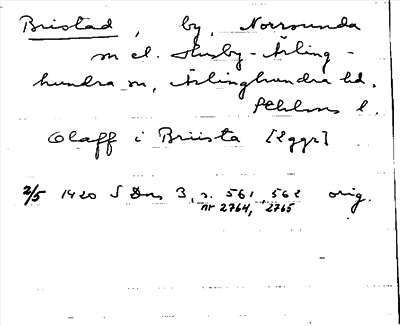 Bristad, by, Norrsunda
sn el. Husby-Ärling-
hundra sn, Ärlinghundra hd,
l.
Olaff i Briista [Eggr]
2/5 1420 S Dns 3, s. 561, 562 orig.
nr 2764, 2765